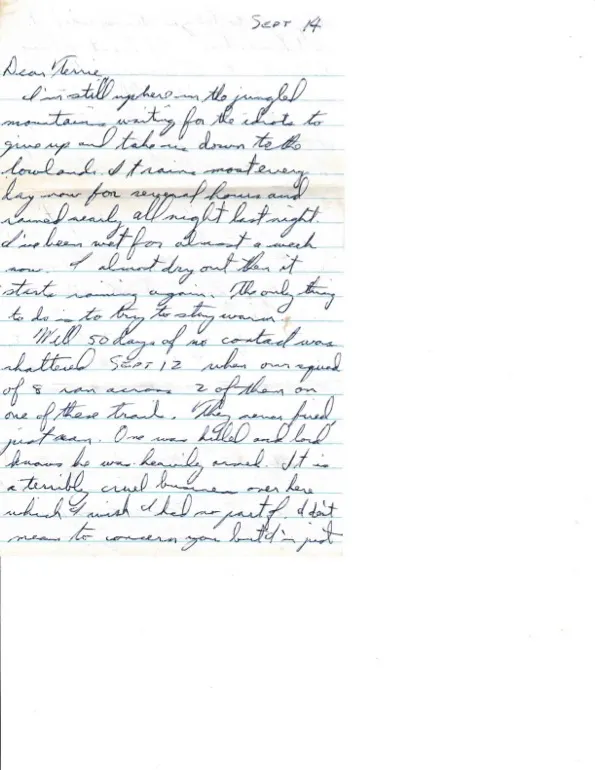 SEPT 14
Dear Terrie,
I'm still up here in the jungled
mountains waiting for the idiots to
give up and take us down to the
lowlands. It rains most every
day now for several hours and
rained nearly all night last night.
I've been wet for almost a week
now. I almost dry out then it
starts raining again. The only thing
to do is to try to stay warm.
Well 50 days of no contact was
shattered SEPT 12 when our squad
of 8 ran across 2 of them on
one of these trails. They never fired,
just ran. One was killed and lord
knows he was heavily armed. It is
a terribly cruel business over here
which I wish I had no part of. I don't
mean to concern you but I'm just